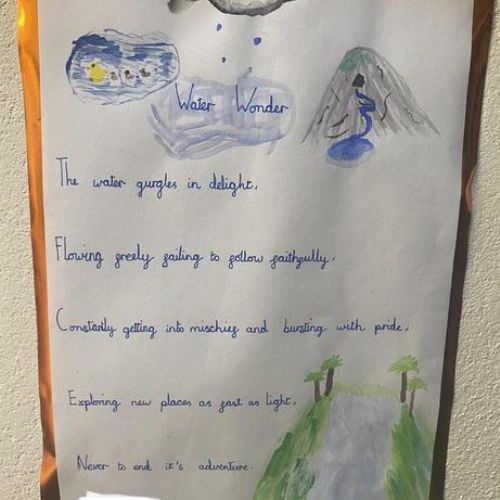 Water Wonder
The water gurgles in delight,
Flowing freely failing to follow faithfully,
Constantly getting into mischief and bursting with pride,
Exploring new places as fast as light,
Never to end it's adventure.